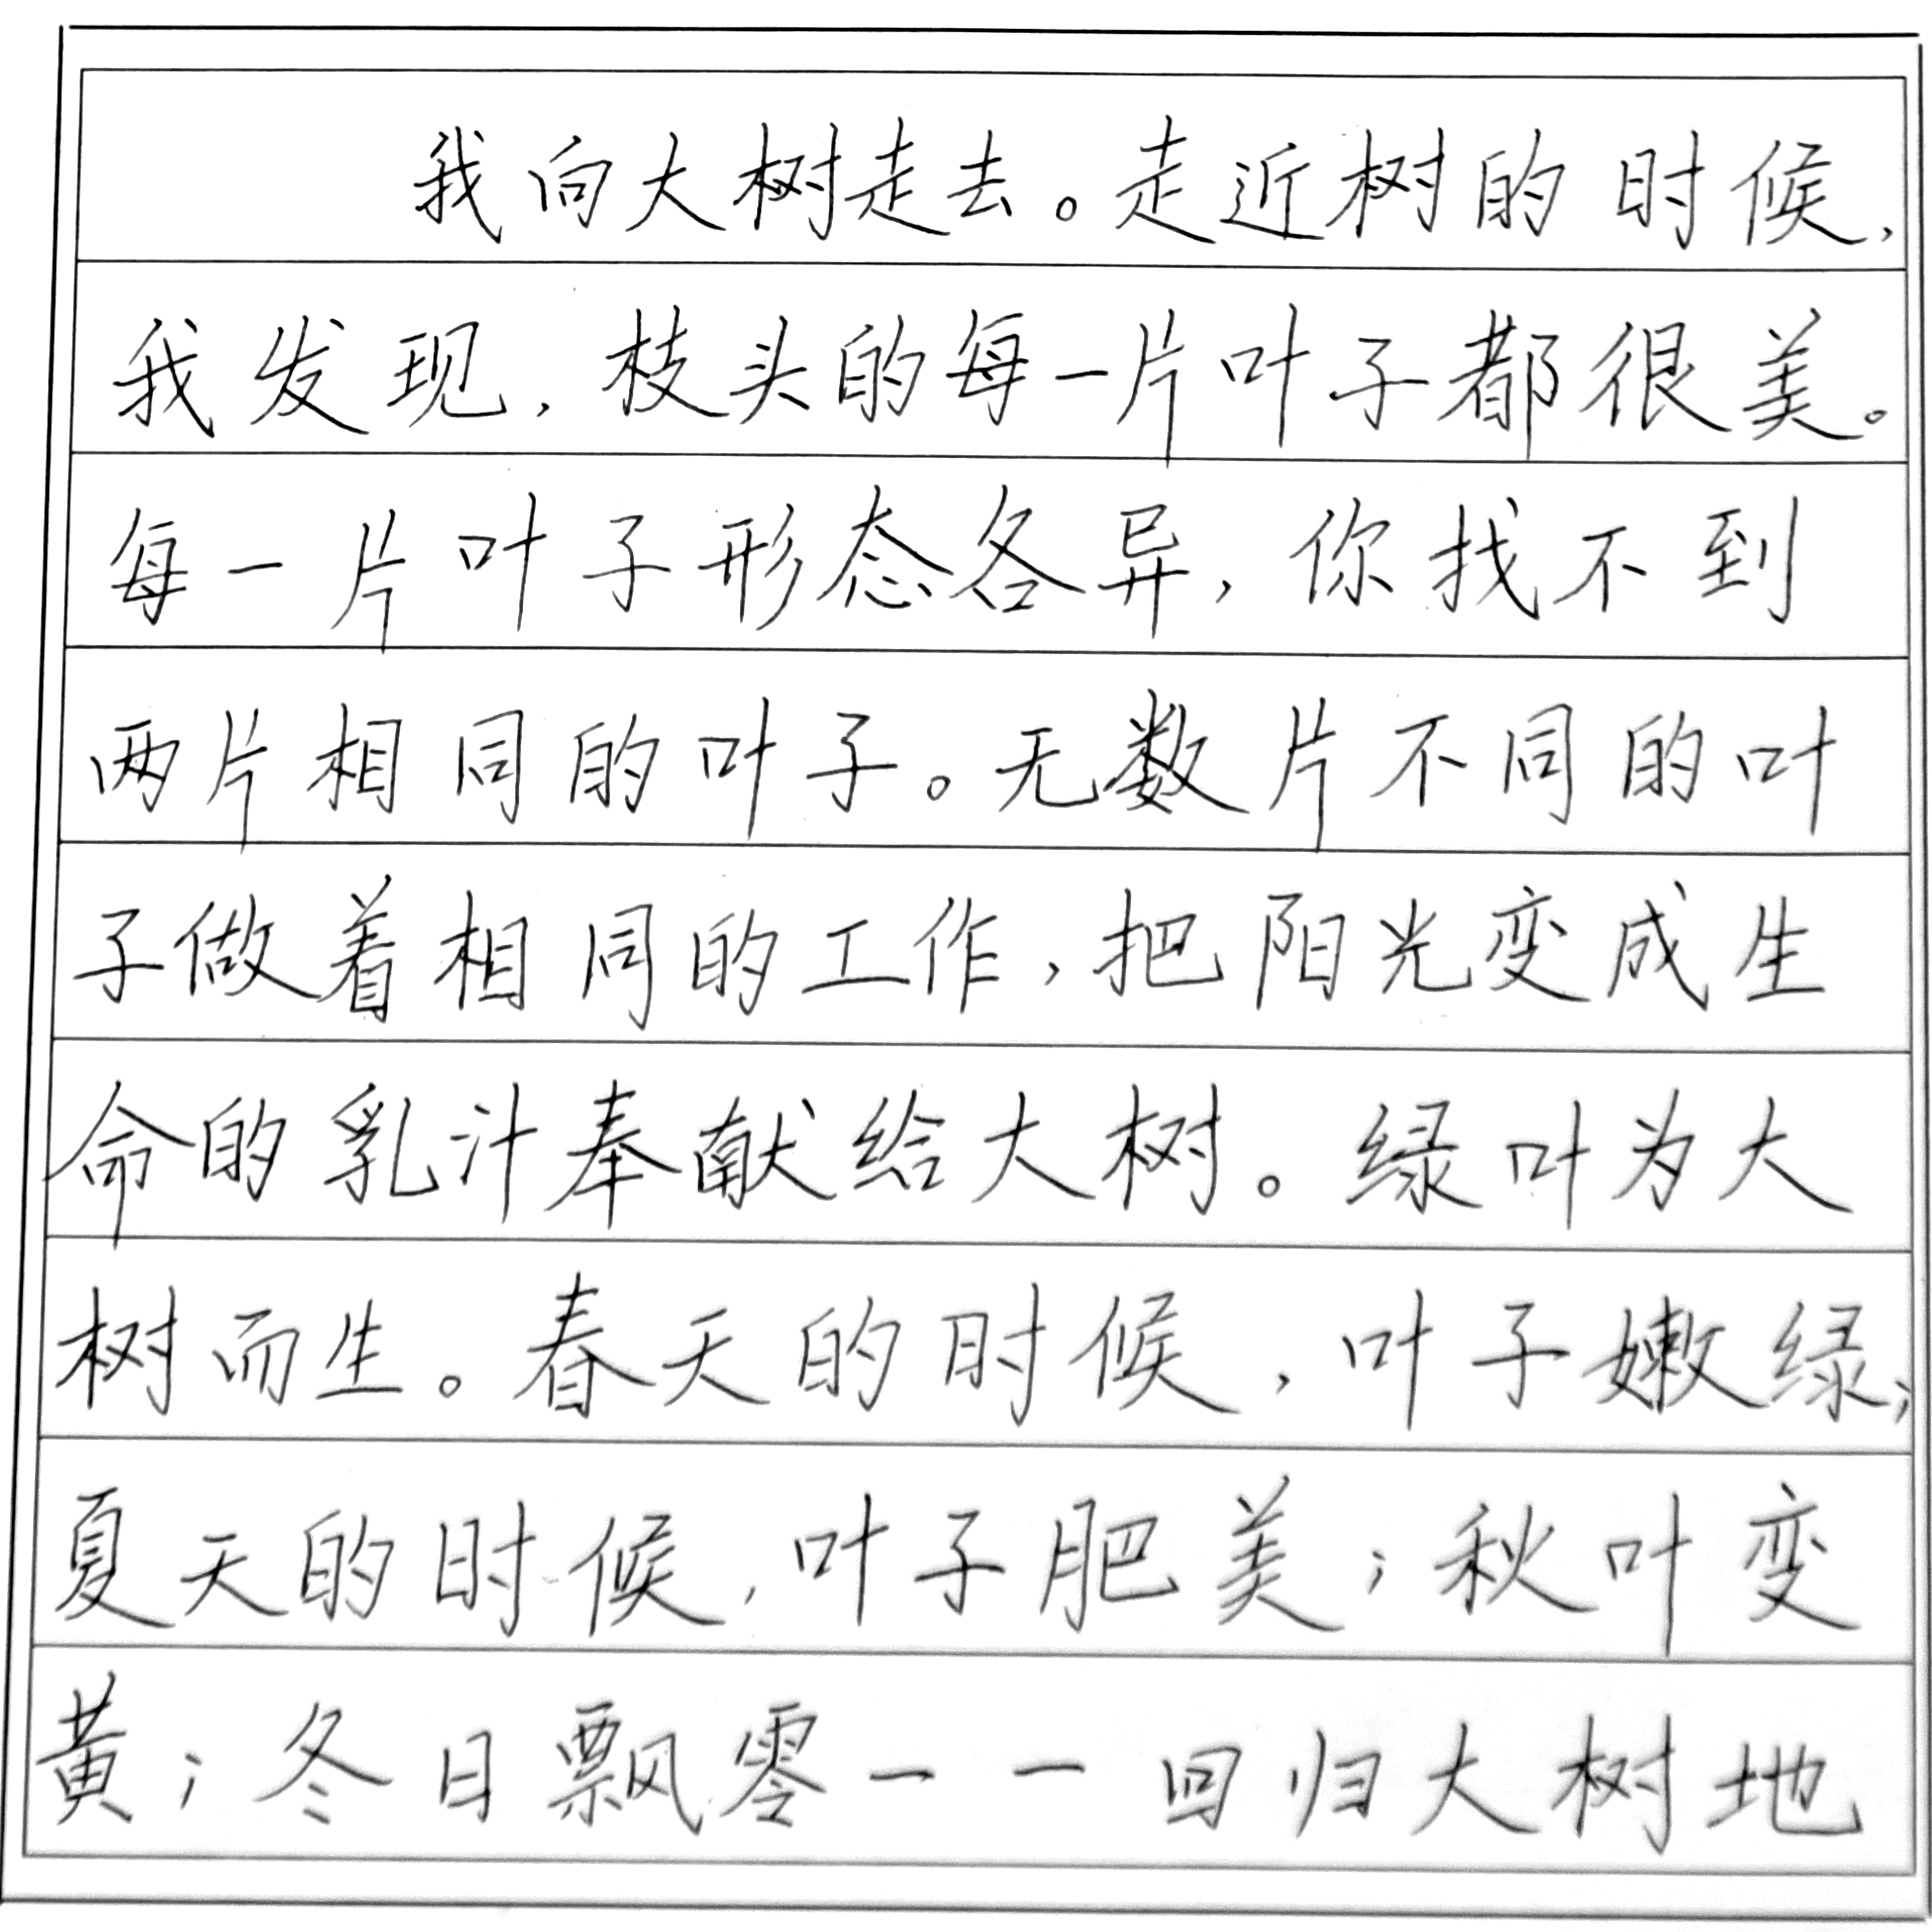 我向大树走去。走近树的时候,
我发现,枝头的每一片叶子都很美。
每一片叶子形态各异,你找不到
两片相同的叶子。无数片不同的叶
子做着相同的工作,把阳光变成生
命的乳汁奉献给大树。绿叶为大
树而生。春天的时候,叶子嫩绿;
夏天的时候,叶子肥美;秋叶变
黄;冬日飘零——回归大树地